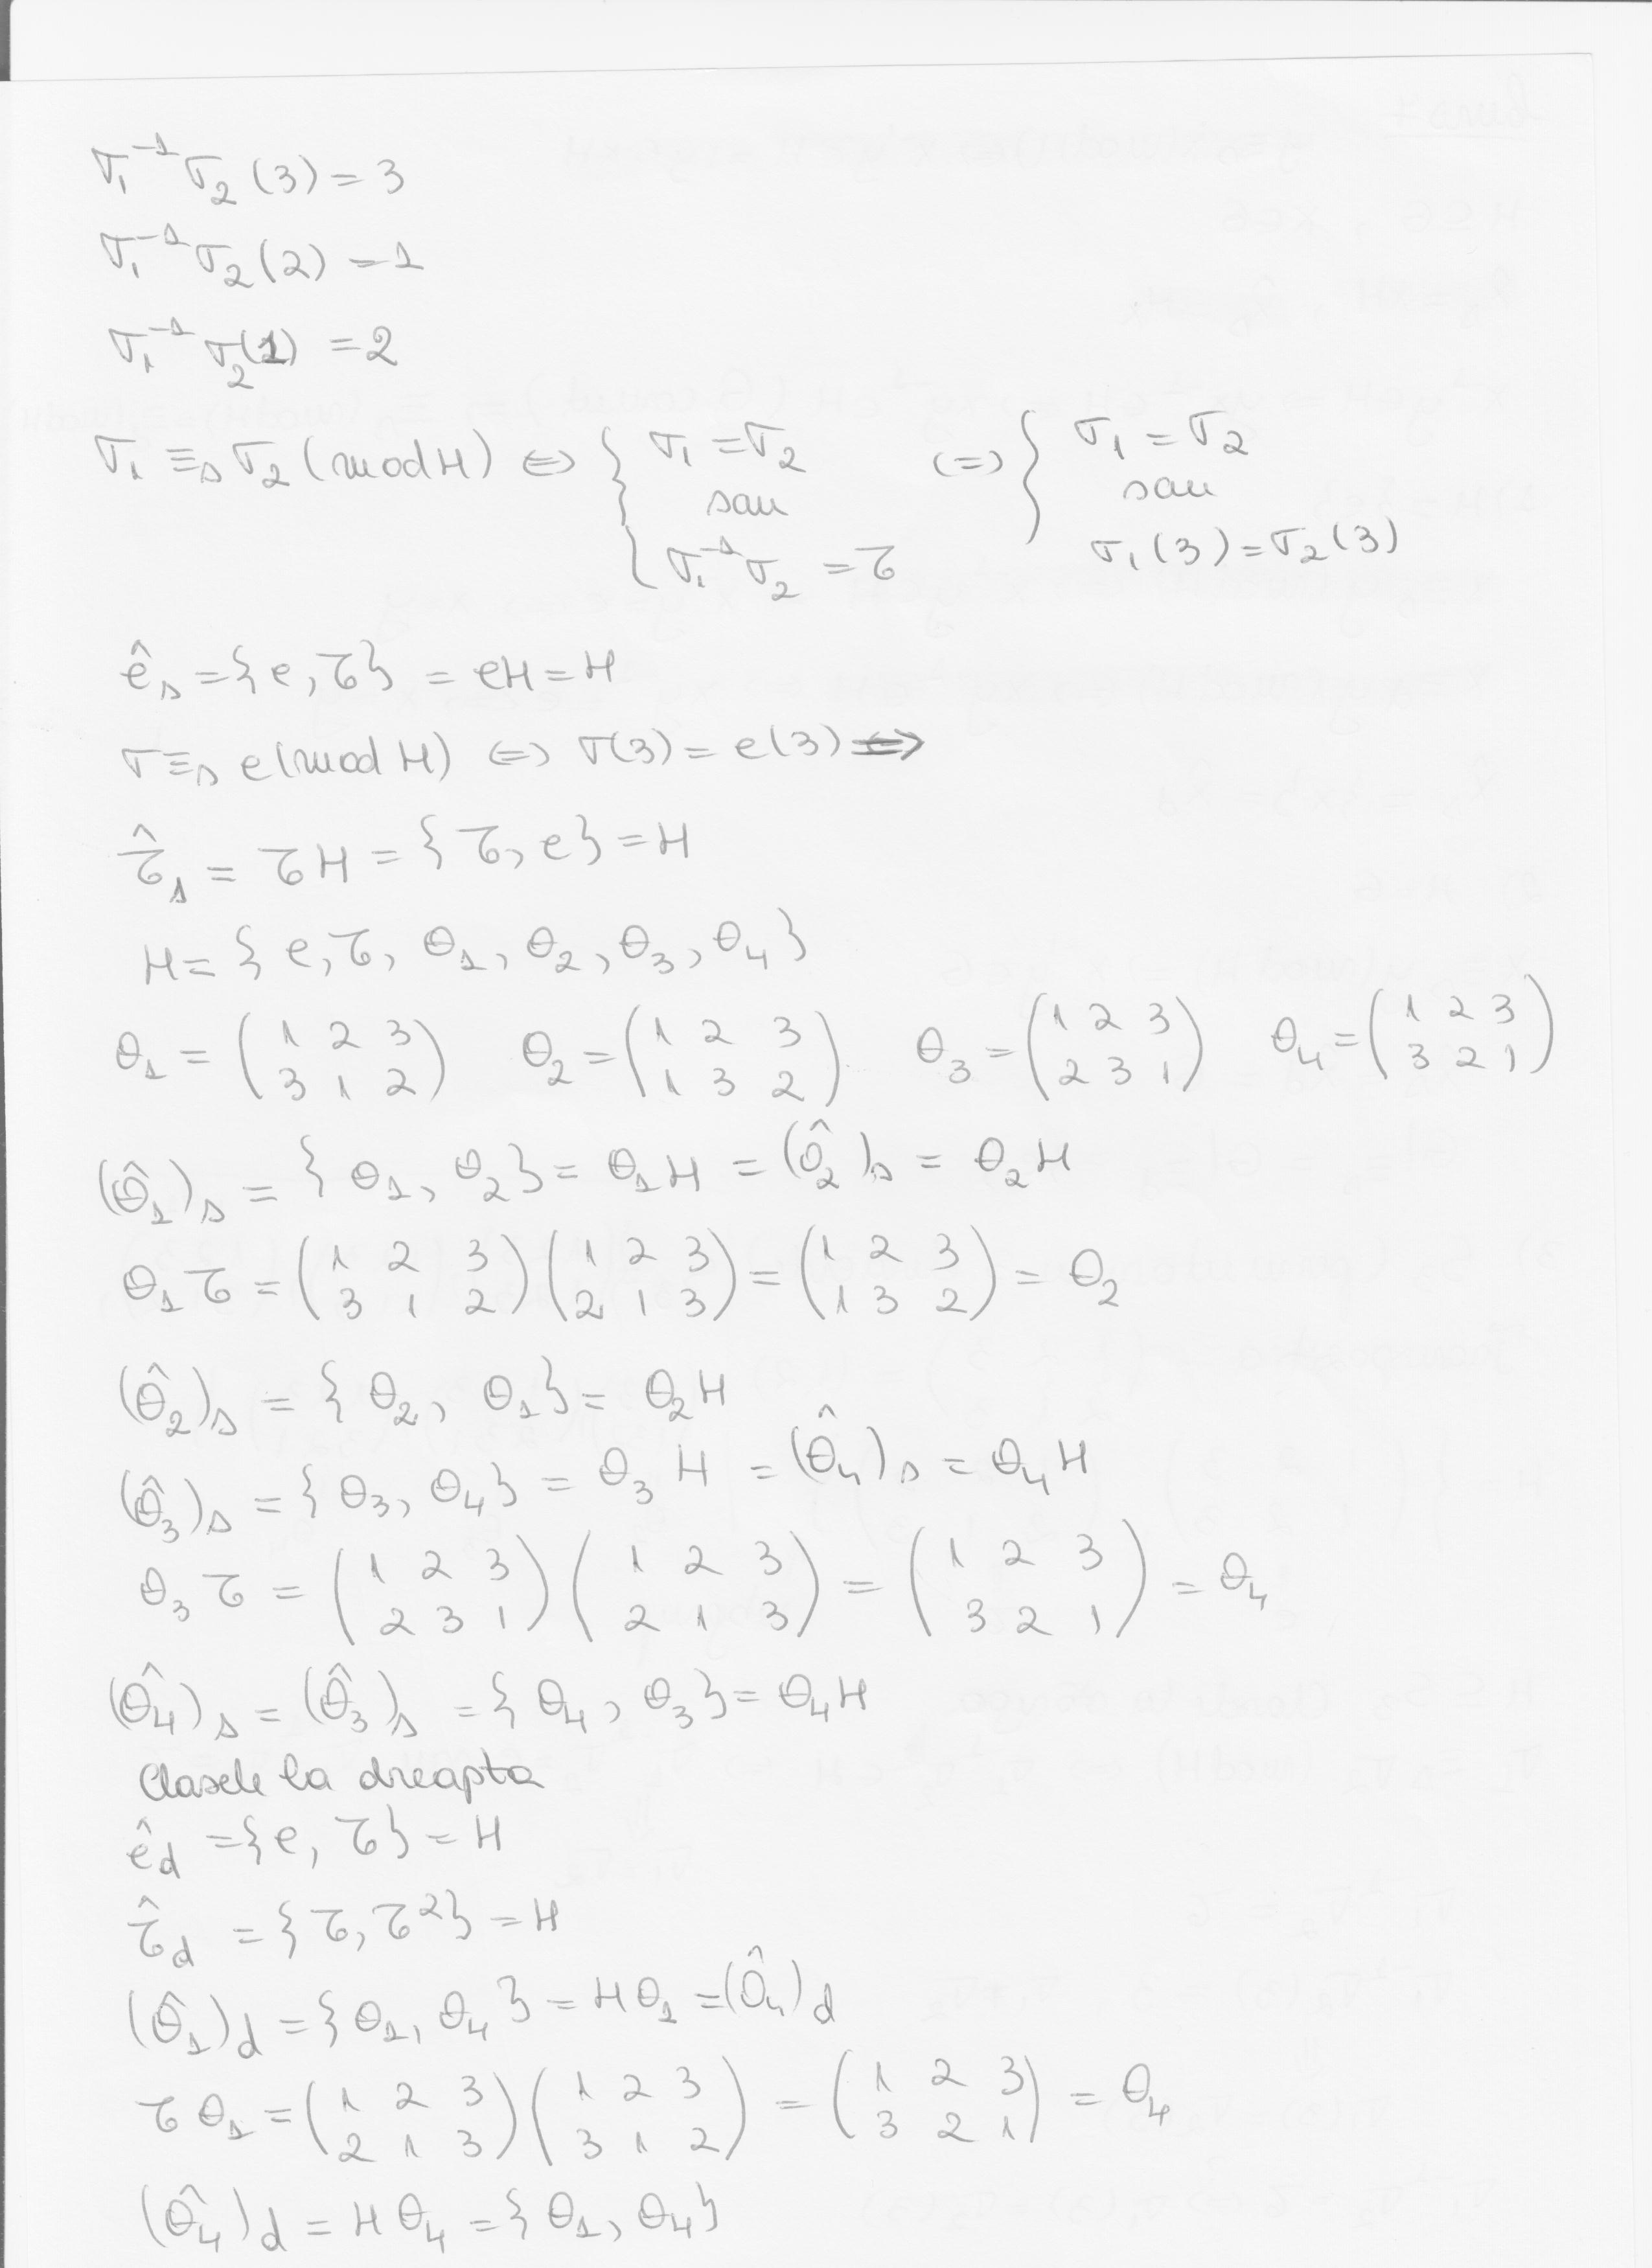 σ₁⁻¹σ₂(3) = 3
σ₁⁻¹σ₂(2) = 1
σ₁⁻¹σ₂(1) = 2
σ₁ ≡ₛ σ₂ (mod H) ⇔ { σ₁ = σ₂ sau σ₁⁻¹σ₂ = τ (=) { σ₁ = σ₂ sau σ₁(3) = σ₂(3)
êₛ = {e, τ} = eH = H
σ ≡ₛ e (mod H) ⇔ σ(3) = e(3) ⇔
τ̂ₛ = τH = {τ, e} = H
H = {e, τ, θ₁, θ₂, θ₃, θ₄}
θ₁ = (1 2 3 / 3 1 2) θ₂ = (1 2 3 / 1 3 2) θ₃ = (1 2 3 / 2 3 1) θ₄ = (1 2 3 / 3 2 1)
(θ̂₁)ₛ = {θ₁, θ₂} = θ₁H = (θ̂₂)ₛ = θ₂H
θ₁τ = (1 2 3 / 3 1 2)(1 2 3 / 2 1 3) = (1 2 3 / 1 3 2) = θ₂
(θ̂₂)ₛ = {θ₂, θ₁} = θ₂H
(θ̂₃)ₛ = {θ₃, θ₄} = θ₃H = (θ̂₄)ₛ = θ₄H
θ₃τ = (1 2 3 / 2 3 1)(1 2 3 / 2 1 3) = (1 2 3 / 3 2 1) = θ₄
(θ̂₄)ₛ = (θ̂₃)ₛ = {θ₄, θ₃} = θ₄H
Clasele la dreapta
ê_d = {e, τ} = H
τ̂_d = {τ, τ²} = H
(θ̂₁)_d = {θ₁, θ₄} = Hθ₁ = (θ̂₄)_d
τθ₁ = (1 2 3 / 2 1 3)(1 2 3 / 3 1 2) = (1 2 3 / 3 2 1) = θ₄
(θ̂₄)_d = Hθ₄ = {θ₁, θ₄}